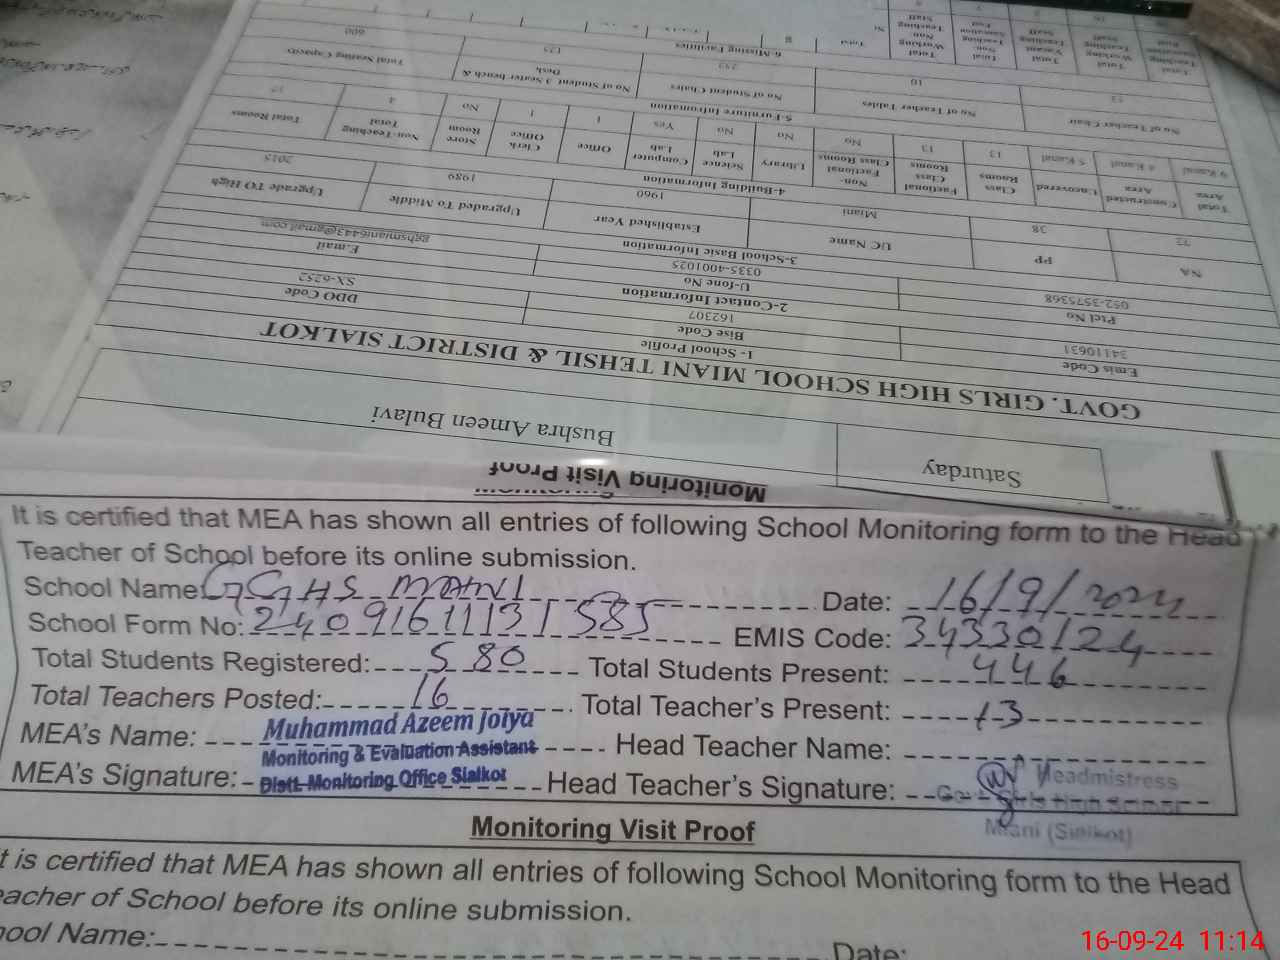 Monitoring Visit Proof
It is certified that MEA has shown all entries of following School Monitoring form to the Head
Teacher of School before its online submission.
School Name: GGHS MIANI Date: 16/9/2024
School Form No: 2409161113 1585 EMIS Code: 34330124
Total Students Registered: 580 Total Students Present: 446
Total Teachers Posted: 16 Total Teacher's Present: 13
MEA's Name: Muhammad Azeem Joiya Head Teacher Name:
Monitoring & Evaluation Assistant
MEA's Signature: Distt. Monitoring Office Sialkot Head Teacher's Signature:
Headmistress
Govt. Girls High School
Miani (Sialkot)
Monitoring Visit Proof
t is certified that MEA has shown all entries of following School Monitoring form to the Head
eacher of School before its online submission.
ool Name: Date:
16-09-24 11:14
Saturday Bushra Ameen Bulavi
GOVT. GIRLS HIGH SCHOOL MIANI TEHSIL & DISTRICT SIALKOT
1- School Profile
Emis Code Bise Code DDO Code
34110631 162307 SX-6252
2-Contact Information
Ptcl No U-fone No E.mail
052-3575368 0335-4001025 gghsmiani6443@gmail.com
3-School Basic Information
NA PP UC Name Established Year Upgraded To Middle Upgrade TO High
72 38 Miani 1960 1989 2015
4-Building Information
Total Area Constructed Area Uncovered Class Rooms Factional Class Rooms Non-Factional Class Rooms Library Science Lab Computer Lab Office Clerk Office Store Room Non-Teaching Total Total Rooms
9 Kanal 4 Kanal 5 Kanal 13 13 No No No Yes 1 1 No 4 17
5-Furniture Infromation
No of Teacher Chair No of Teacher Tables No of Student Chairs No of Student 3 Seater bench & Desk Total Seating Capacity
10 125 600
6-Missing Facilities